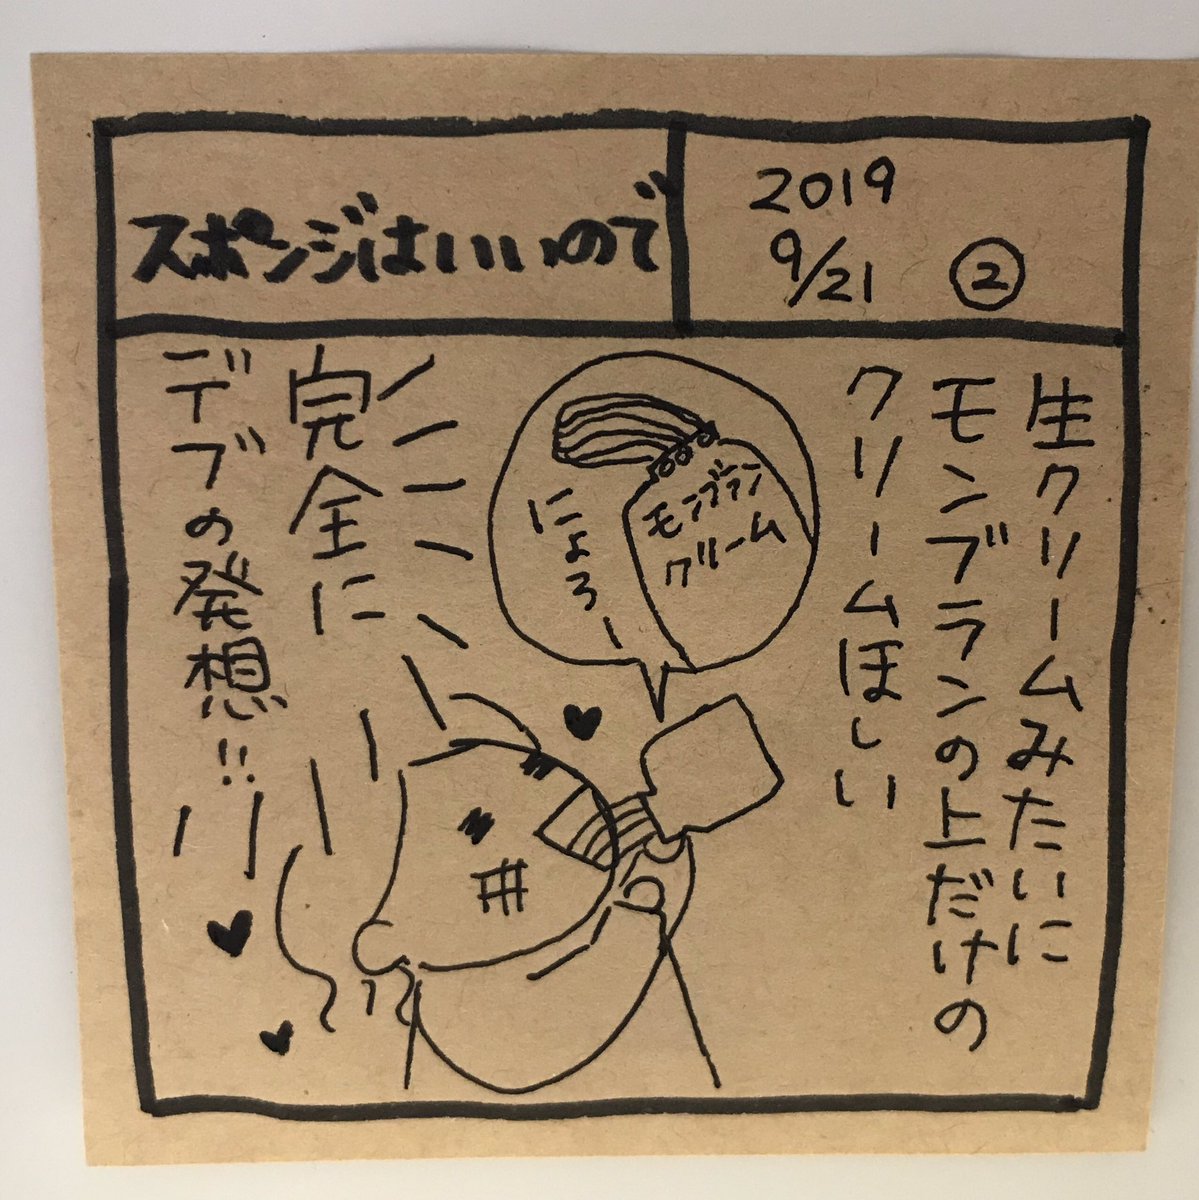 スポンジはいいので
2019
9/21 ②
生クリームみたいに
モンブランの上だけの
クリームほしい
モンブラン
クリーム
にょろー
完全に
デブの発想!!